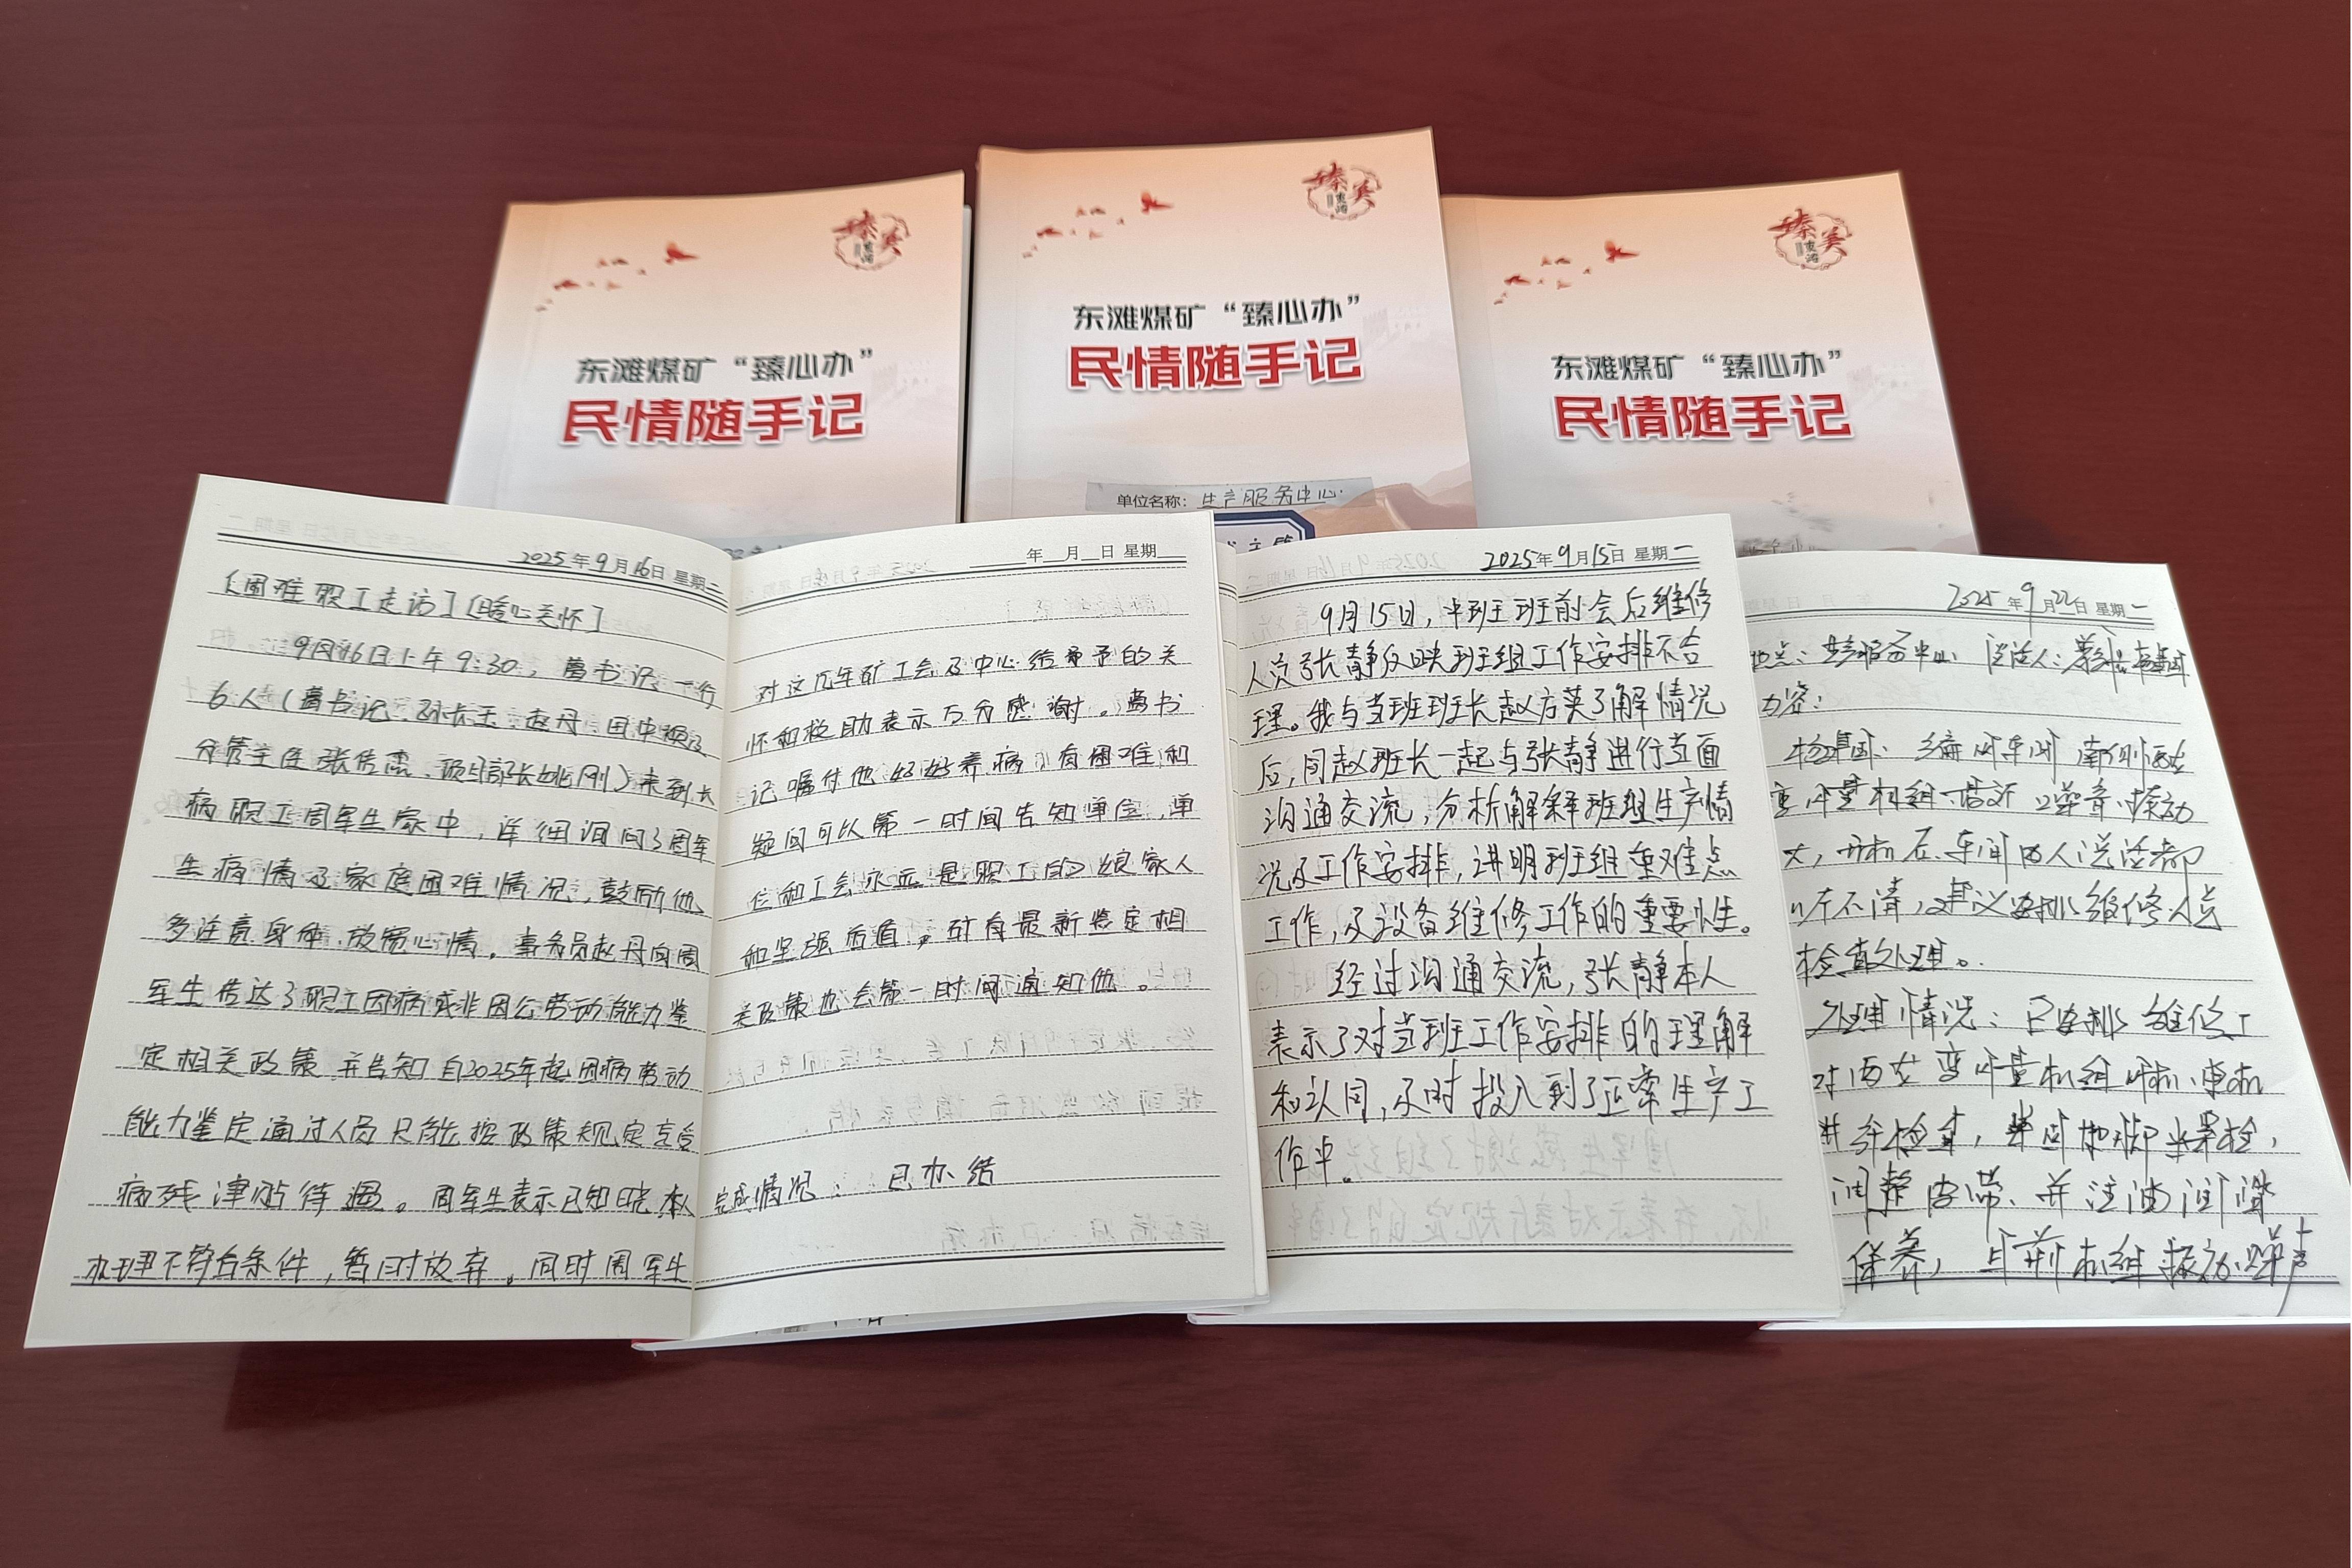 臻美
东滩煤矿“臻心办”
民情随手记
臻美
东滩煤矿“臻心办”
民情随手记
单位名称：生产服务中心
臻美
东滩煤矿“臻心办”
民情随手记
2025年9月16日 星期二
［困难职工走访］［暖心关怀］
9月16日上午9:30，书记一行
6人（书记、赵丹、田中
分管主任张传、项目部长姚刚）来到长
病职工周军生家中，详细询问了周军
生病情及家庭困难情况，鼓励他
多注意身体、放宽心情。事务员赵丹向周
军生传达了职工因病或非因公劳动能力鉴
定相关政策，并告知自2025年起因病劳动
能力鉴定通过人员只能按政策规定享受
病残津贴待遇。周军生表示已知晓，本人
办理不符合条件，暂时放弃。同时周军生
年 月 日 星期
对这几年矿工会及中心给予的关
怀和救助表示万分感谢。书
记嘱付他好好养病，有困难和
疑问可以第一时间告知单位，单
位和工会永远是职工的娘家人
和坚强后盾。矿有最新鉴定相
关政策也会第一时间通知他。
完成情况：已办结
2025年9月15日 星期一
9月15日，中班班前会后维修
人员张静反映班组工作安排不合
理。我与当班班长赵启英了解情况
后，同赵班长一起与张静进行当面
沟通交流，分析解释班组生产情
况及工作安排，讲明班组重难点
工作，及设备维修工作的重要性。
经过沟通交流，张静本人
表示了对当班工作安排的理解
和认同，及时投入到了正常生产工
作中。
2025年9月22日 星期一
地点：服务中心 谈话人：
内容：
车间南侧西
变质量机组一搭近噪音、振动
大，开机后车间内人说话都
听不清，建议安排维修人员
检查处理。
处理情况：已安排维修工
对西变质量机组停机、
进行检查，地脚检，
调整皮带、并注油润滑
保养，目前机组振动噪声